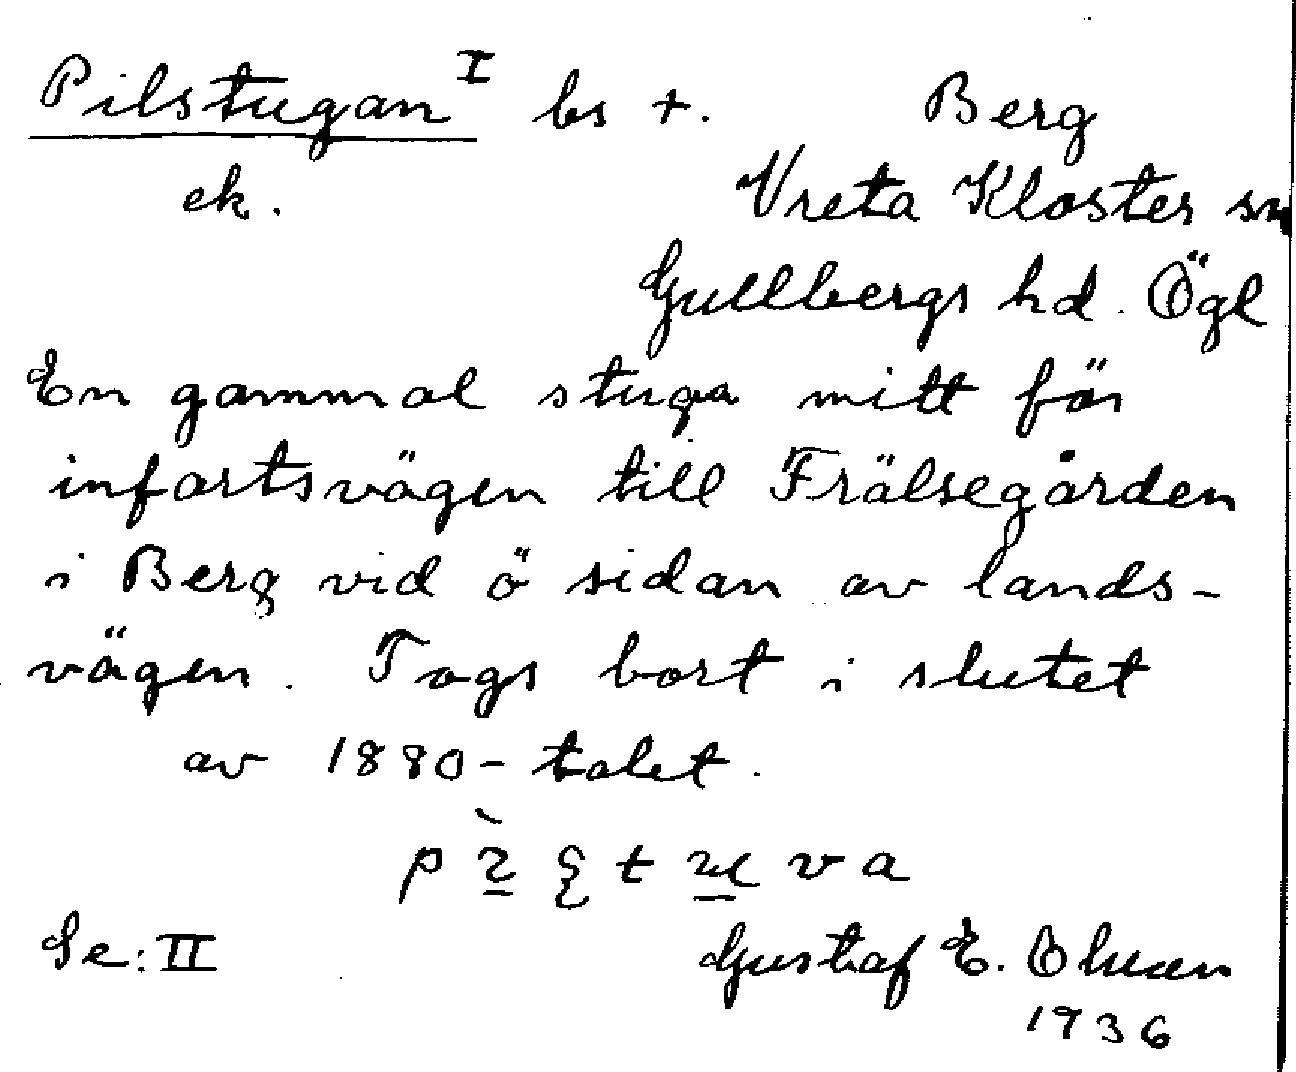 Pilstugan I bs +. Berg
ek. Vreta Kloster sn
Gullbergs hd. Ögl
En gammal stuga mitt för
infartsvägen till Frälsegården
i Berg vid ö sidan av lands-
vägen. Togs bort i slutet
av 1880-talet.
Se: II Gustaf E.
1936